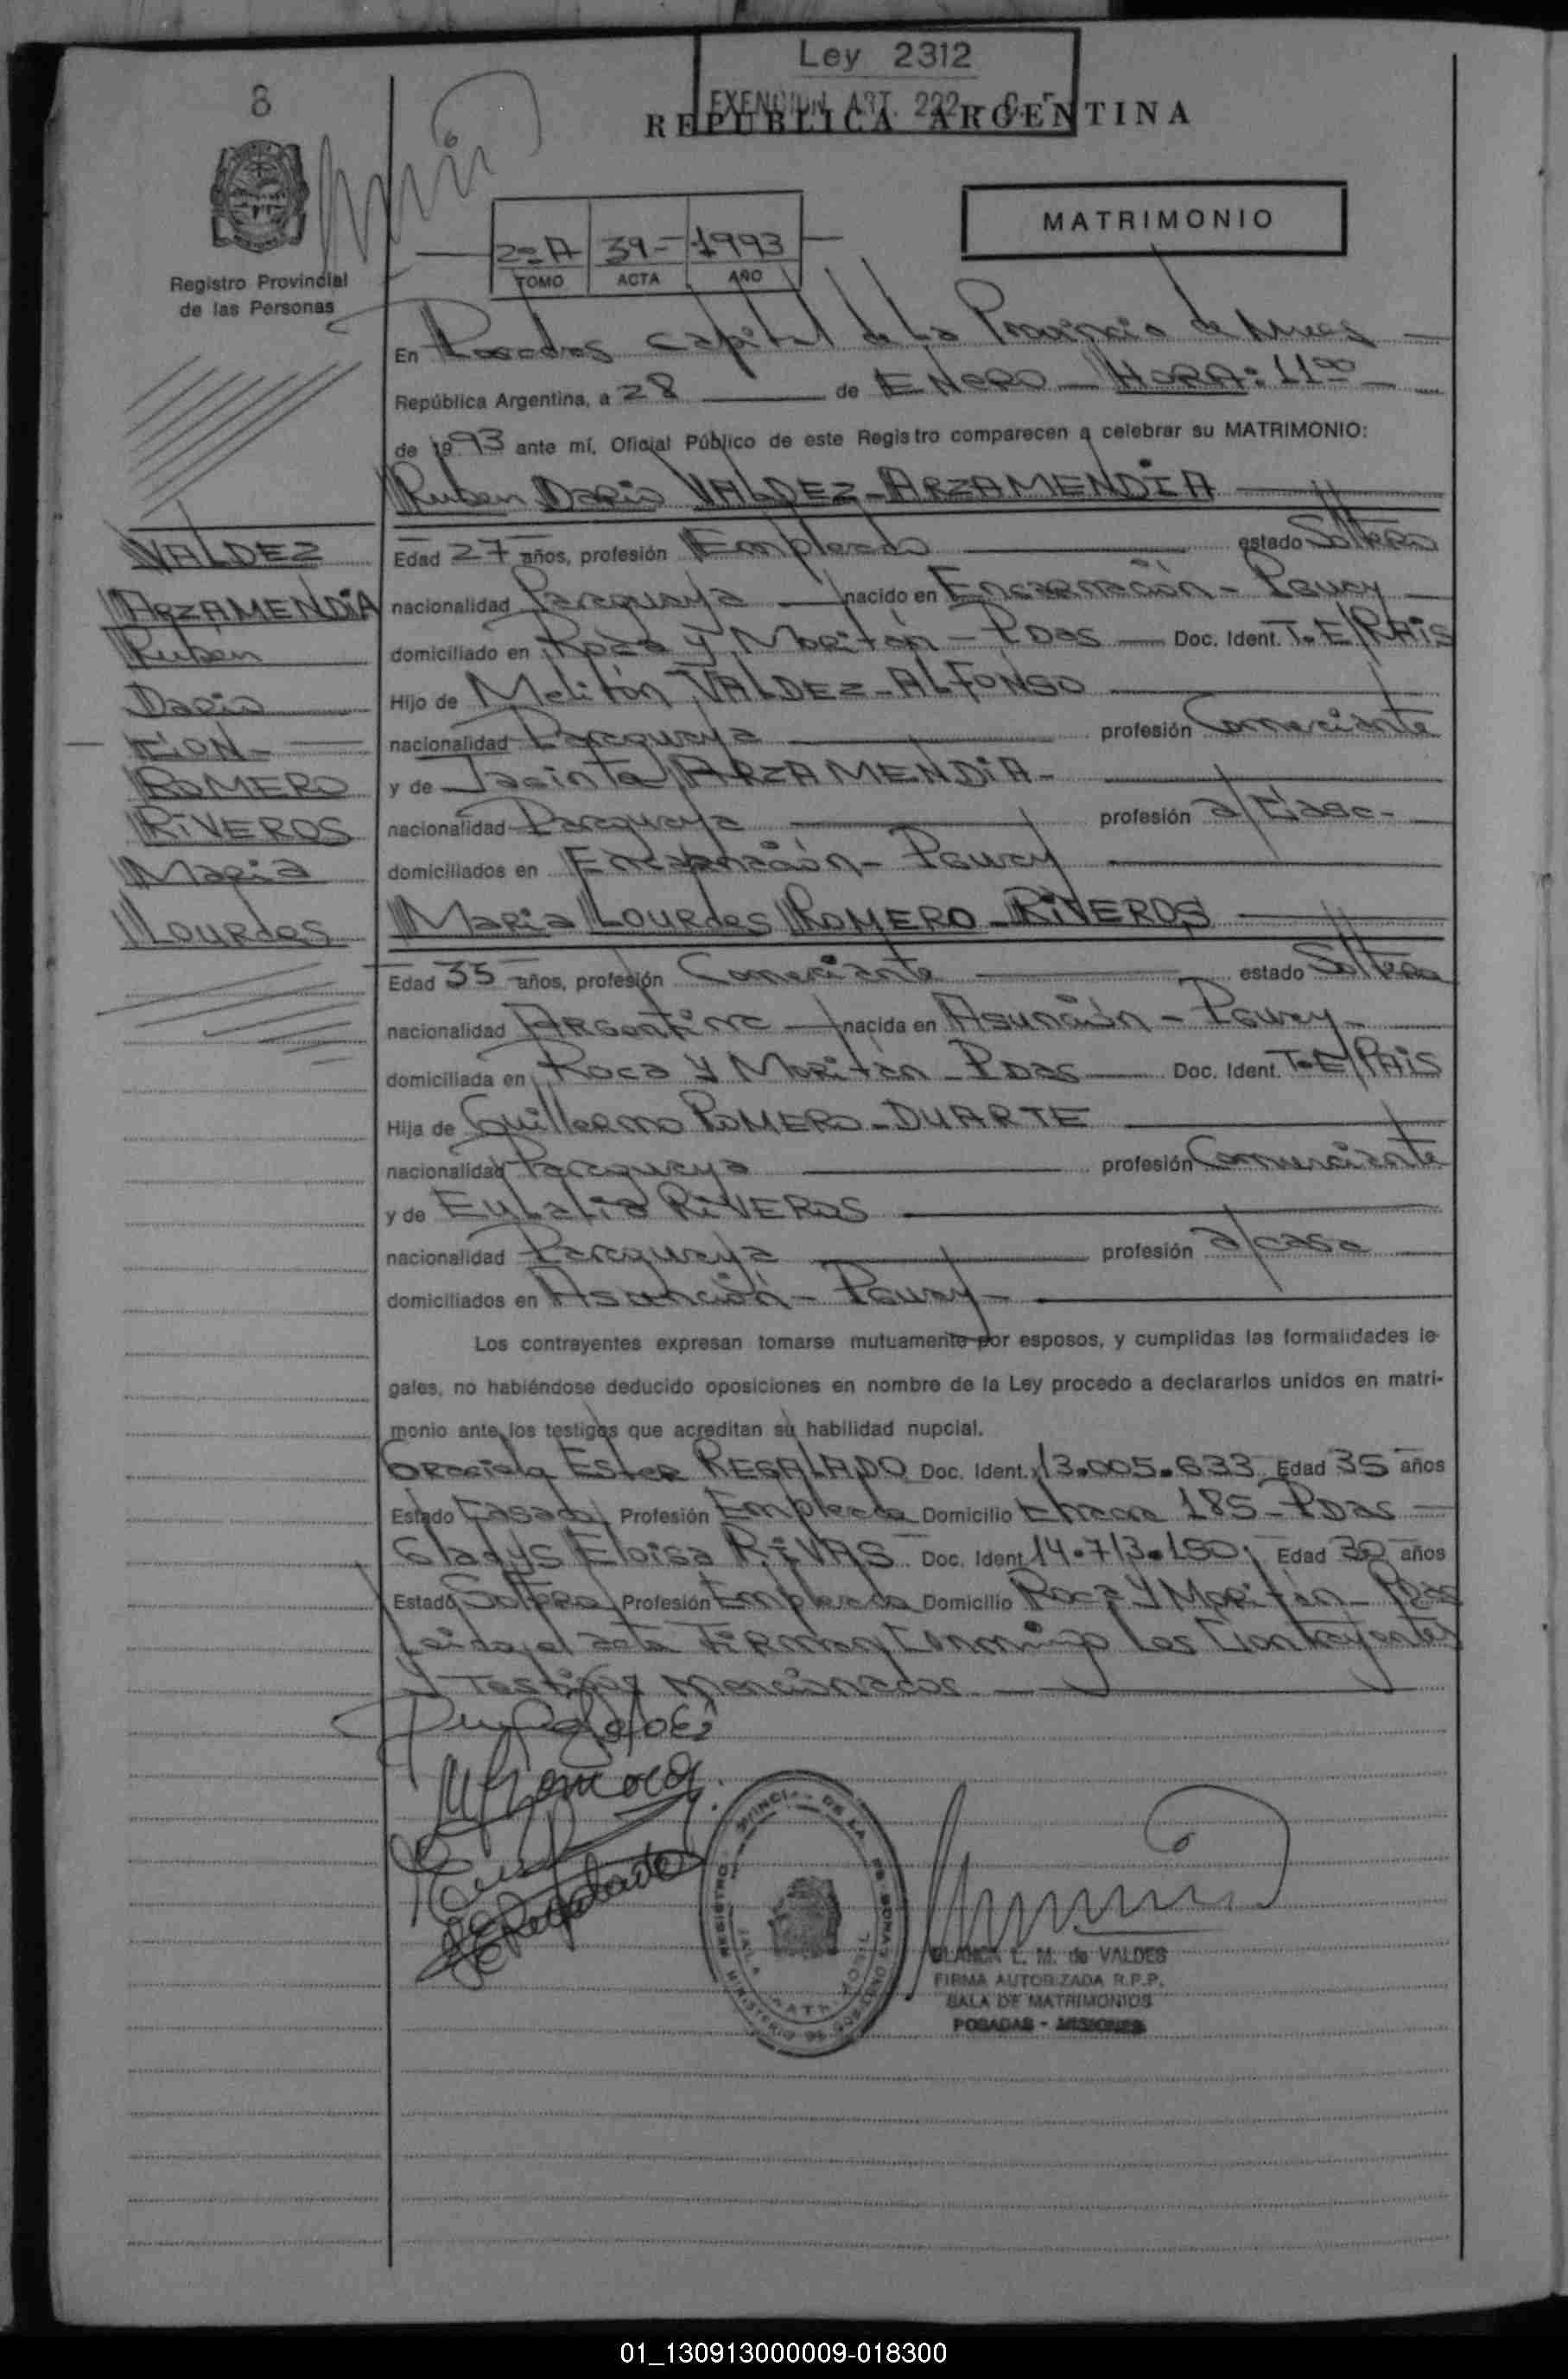 Ley 2312
EXENCION ART. 222
8
REPUBLICA ARGENTINA
MATRIMONIO
2º A 39- 1993
TOMO ACTA AÑO
Registro Provincial
de las Personas
En Posadas capital de la Provincia de Mnes
República Argentina, a 28 de Enero HORA: 11 00
de 1993 ante mí, Oficial Público de este Registro comparecen a celebrar su MATRIMONIO:
Ruben Dario VALDEZ-ARZAMENDIA
VALDEZ
ARZAMENDIA
Ruben
Dario
CON-
ROMERO
RIVEROS
Maria
Lourdes
Edad 27 años, profesión Empleado estado Soltero
nacionalidad Paraguaya nacido en Encarnación - Pguay
domiciliado en Roca y Moritán - Pdas Doc. Ident. T.E/PAIS
Hijo de Melitón VALDEZ-ALFONSO
nacionalidad Paraguaya profesión Comerciante
y de Jacinta ARZAMENDIA-
nacionalidad Paraguaya profesión a/Casa-
domiciliados en Encarnación - Pguay
Maria Lourdes ROMERO-RIVEROS
Edad 35 años, profesión Comerciante estado Soltera
nacionalidad Argentina nacida en Asunción - Pguay-
domiciliada en Roca y Moritán - Pdas Doc. Ident. T.E/PAIS
Hija de Guillermo ROMERO-DUARTE
nacionalidad Paraguaya profesión Comerciante
y de Eulalia RIVEROS
nacionalidad Paraguaya profesión a/casa
domiciliados en Asunción - Pguay-
Los contrayentes expresan tomarse mutuamente por esposos, y cumplidas las formalidades le-
gales, no habiéndose deducido oposiciones en nombre de la Ley procedo a declararlos unidos en matri-
monio ante los testigos que acreditan su habilidad nupcial.
Graciela Ester REGALADO Doc. Ident. 13.005.633 Edad 35 años
Estado Casada Profesión Empleada Domicilio 185 - Pdas
Gladys Eloisa RIVAS Doc. Ident. 14.713.150 Edad 30 años
Estado Soltera Profesión Empleada Domicilio Roca y Moritán - Pdas
Leida el acta Firman Conmigo los Contrayentes
y Testigos mencionados
BLANCA L. M. de VALDES
FIRMA AUTORIZADA R.P.P.
SALA DE MATRIMONIOS
POSADAS - MISIONES
01_130913000009-018300